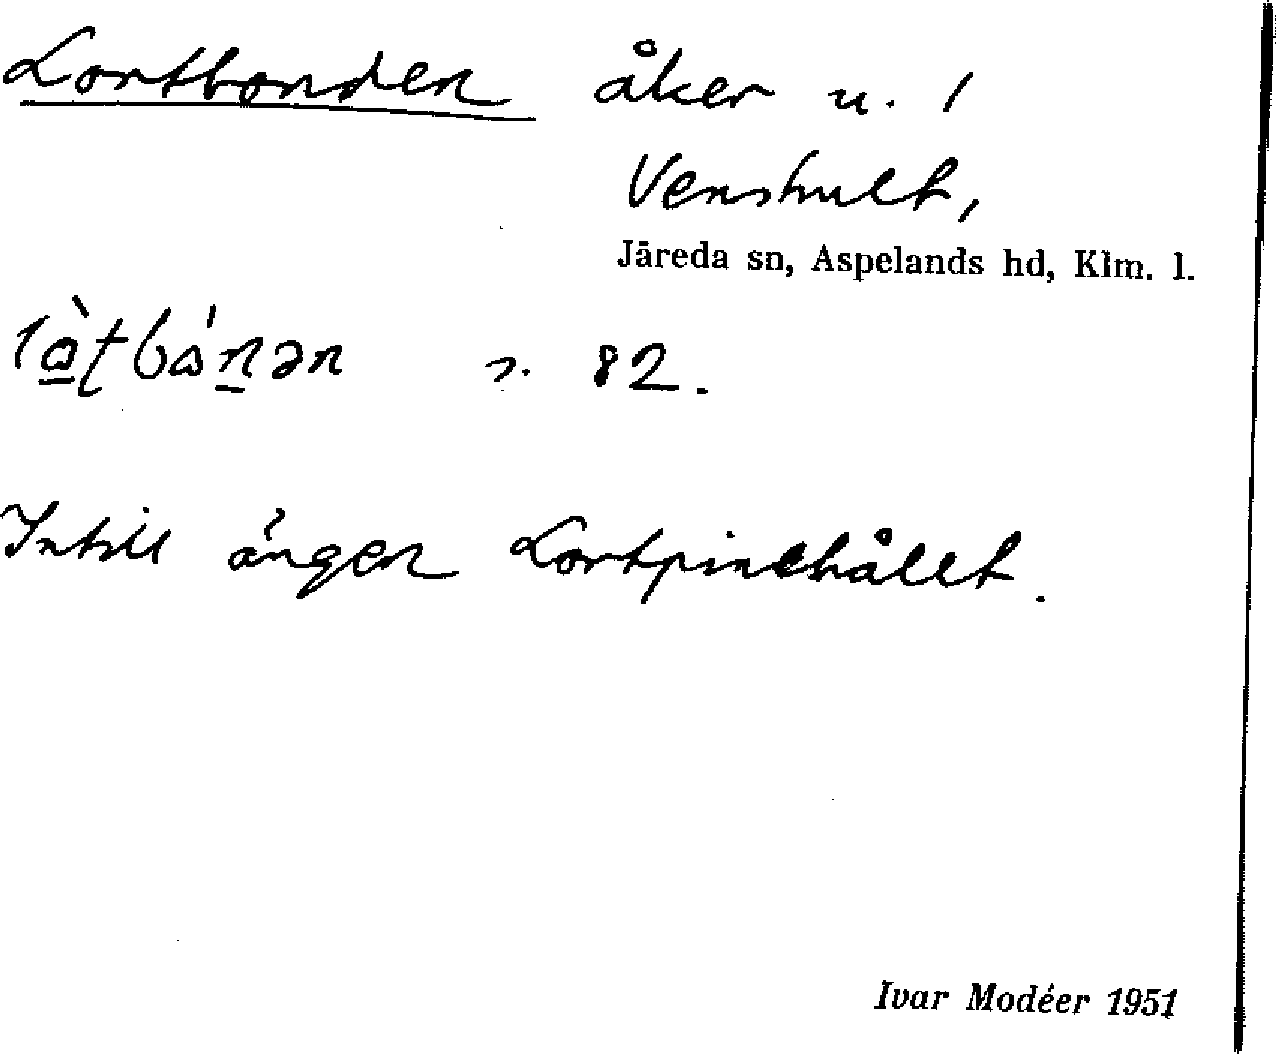 Lortbonden åker u. 1
Venshult,
Järeda sn, Aspelands hd, Klm. l.
82.
Intill ängen Lortpinehållet.
Ivar Modéer 1951